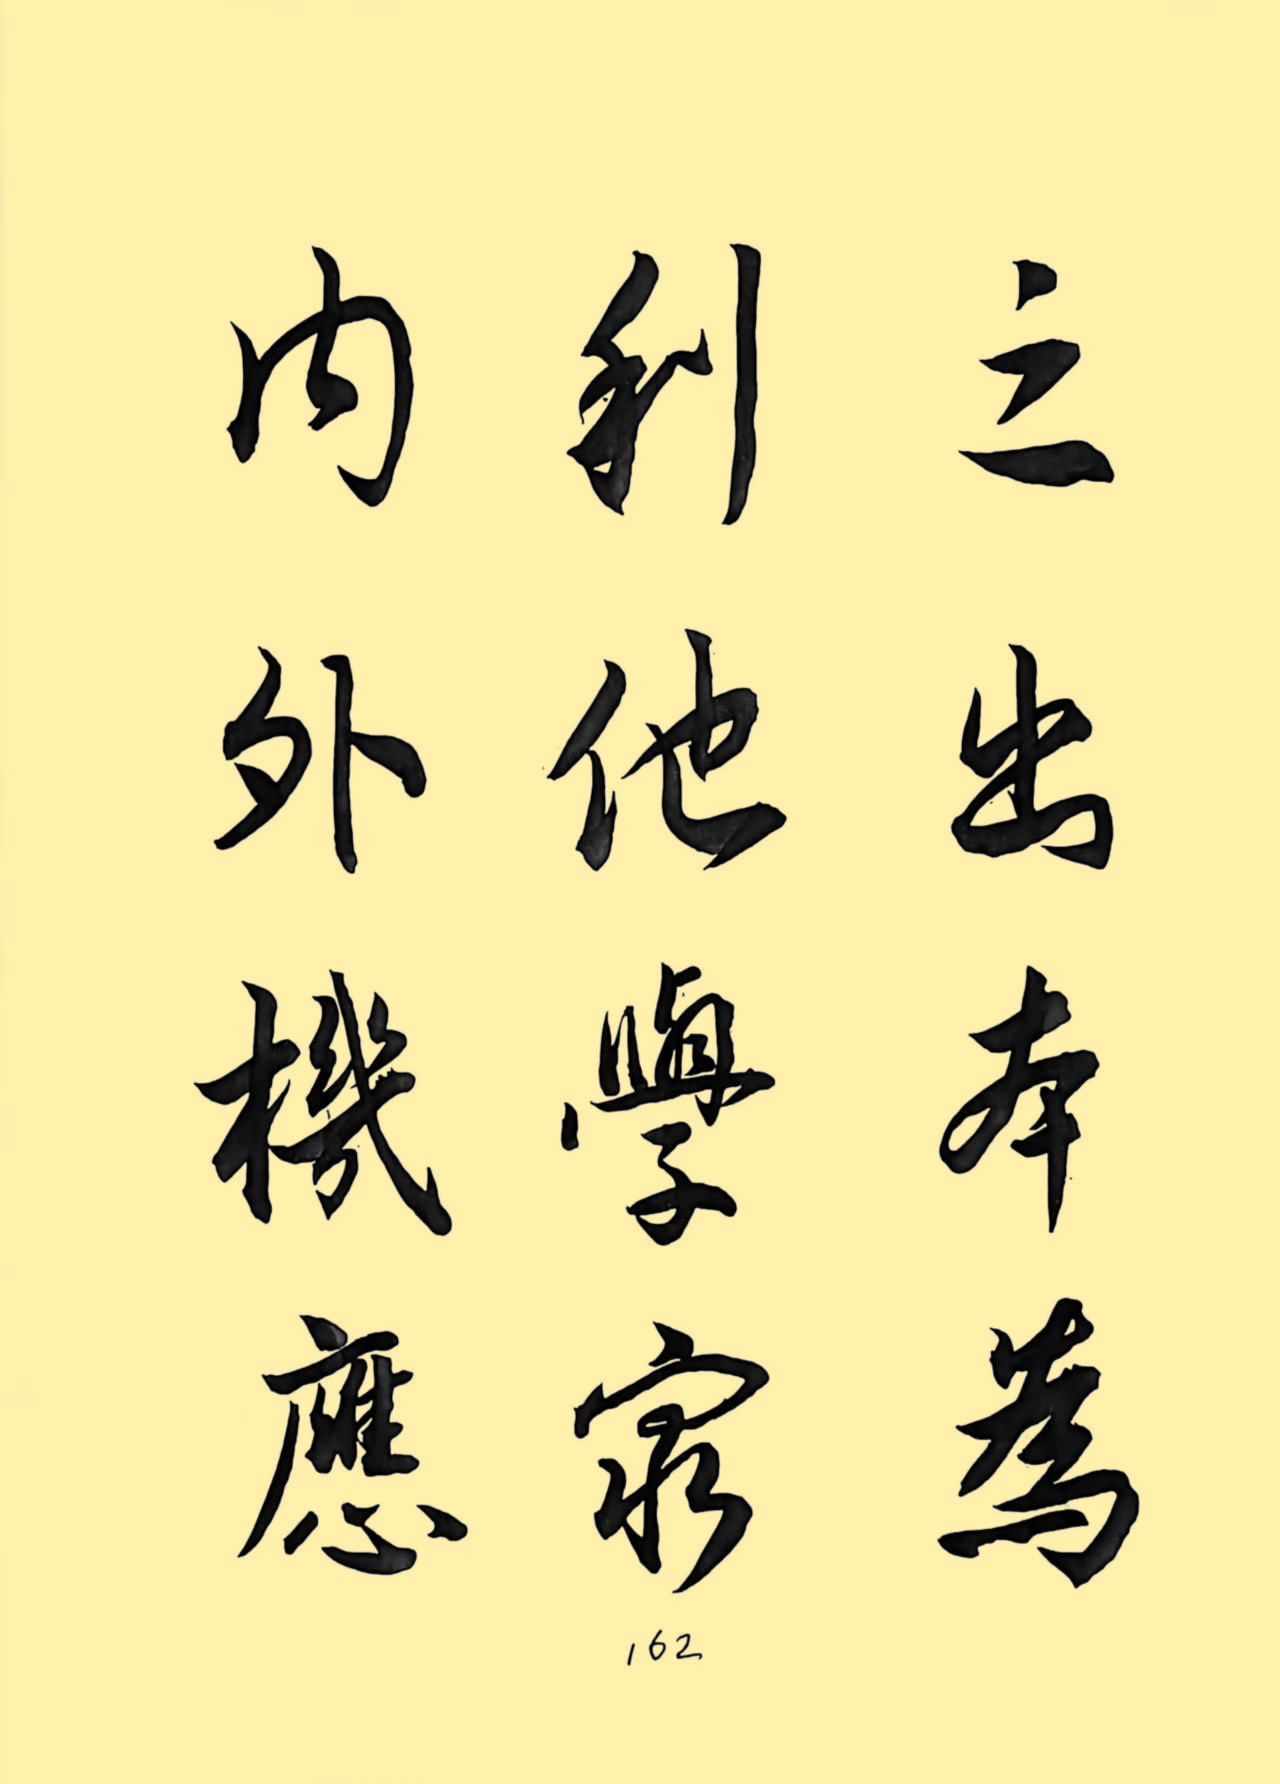 立出本為
利他學家
內外機應
162